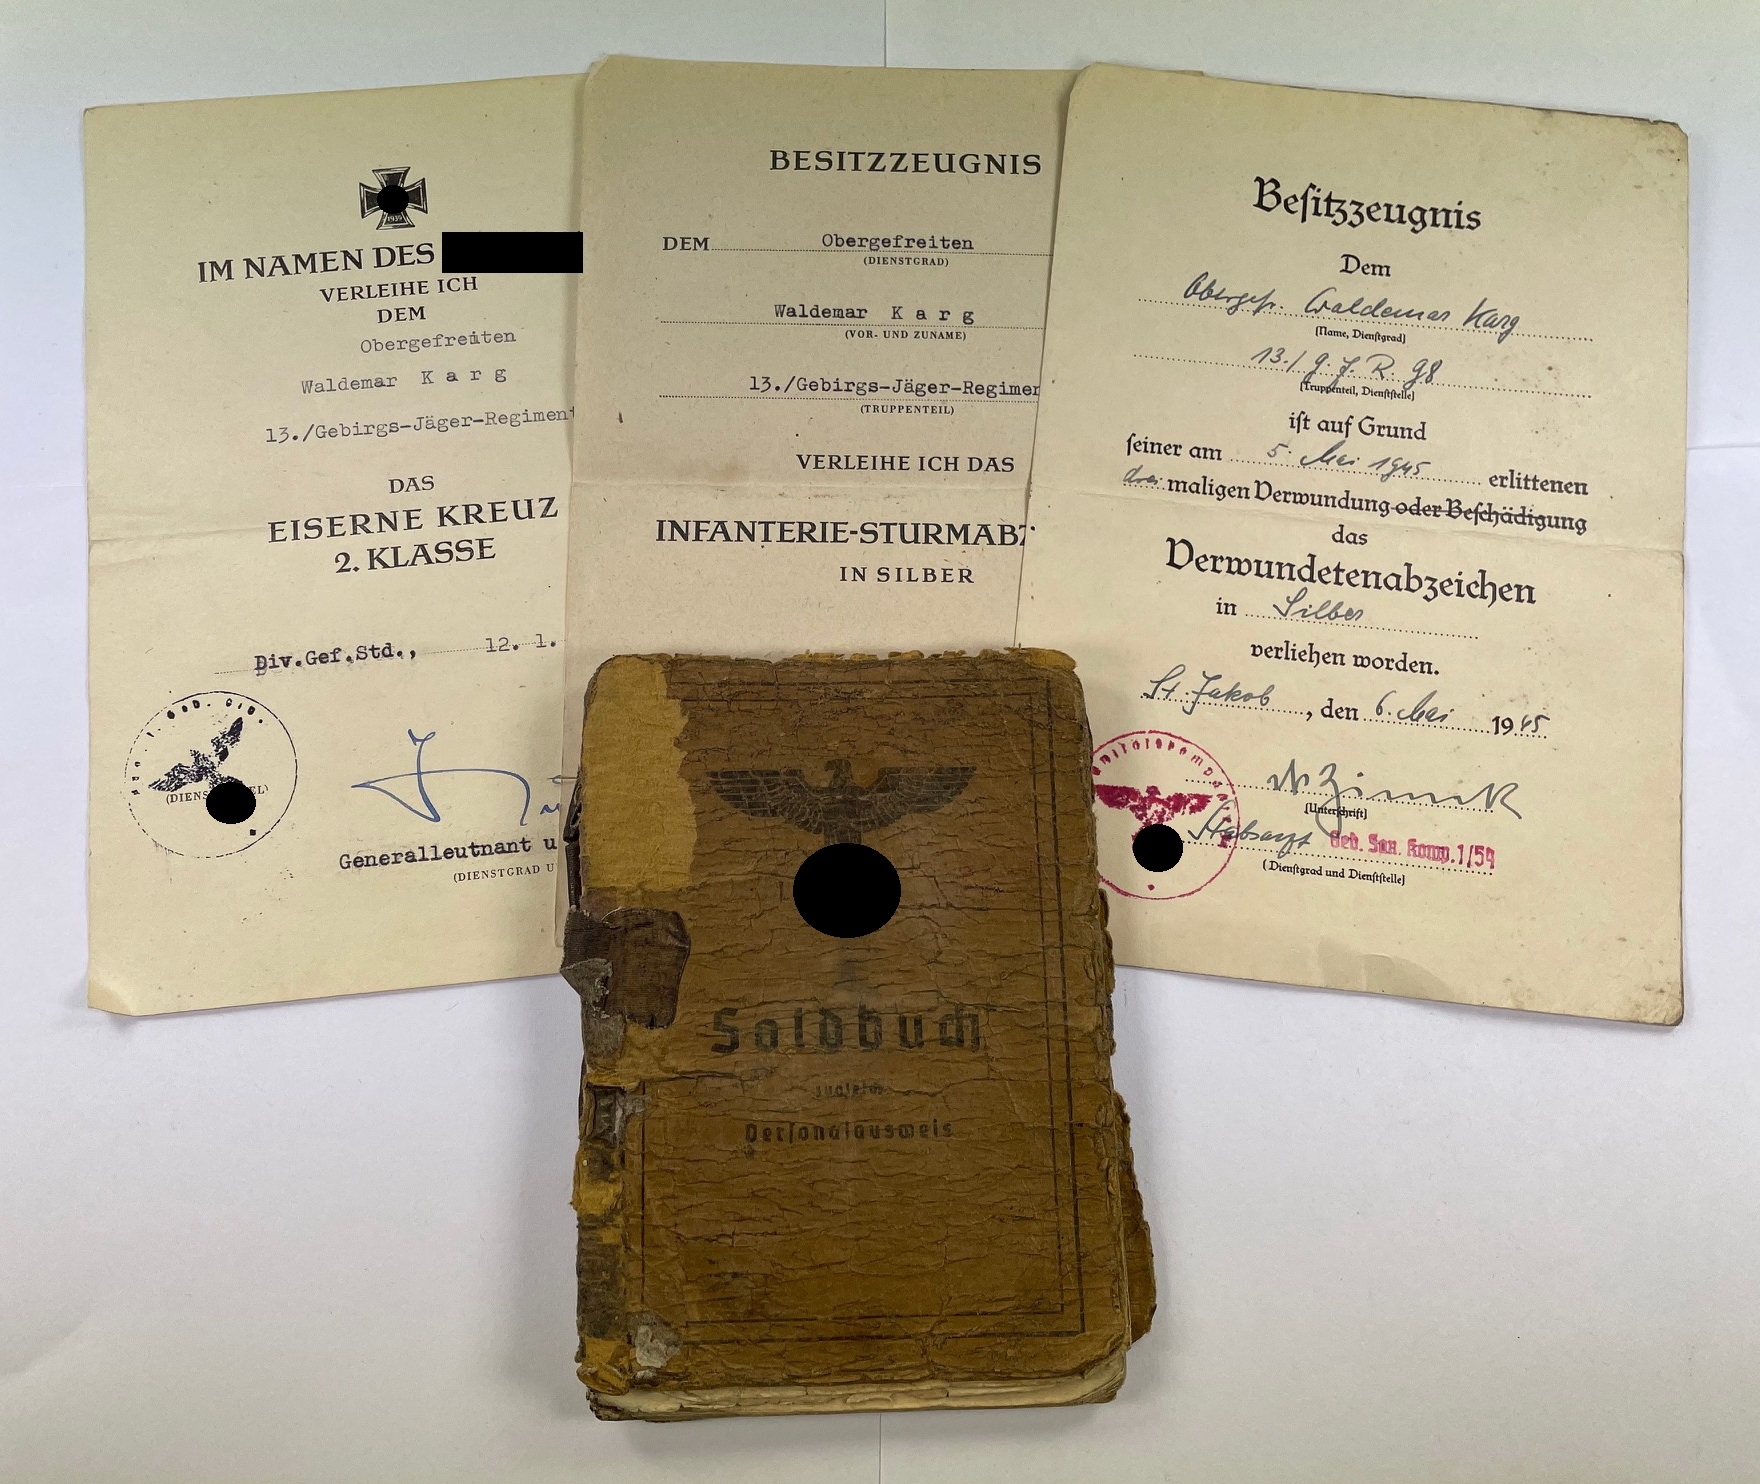 1939
IM NAMEN DES
VERLEIHE ICH
DEM
Obergefreiten
Waldemar K a r g
13./Gebirgs-Jäger-Regiment
DAS
EISERNE KREUZ
2. KLASSE
Div.Gef.Std., 12. 1.
(DIENS EL)
Generalleutnant u
(DIENSTGRAD U
BESITZZEUGNIS
DEM Obergefreiten
(DIENSTGRAD)
Waldemar K a r g
(VOR- UND ZUNAME)
13./Gebirgs-Jäger-Regimen
(TRUPPENTEIL)
VERLEIHE ICH DAS
INFANTERIE-STURMABZ
IN SILBER
Beſitzzeugnis
Dem
Obergefr. Waldemar Karg
(Name, Dienſtgrad)
13./G.J.R. 98
(Truppenteil, Dienſtſtelle)
iſt auf Grund
ſeiner am 5. Mai 1945 erlittenen
drei maligen Verwundung oder Beſchädigung
das
Verwundetenabzeichen
in Silber
verliehen worden.
St. Jakob, den 6. Mai 1945
(Unterſchrift)
Stabsarzt Geb. San. Komp. 1/54
(Dienſtgrad und Dienſtſtelle)
Soldbuch
zugleich
Perſonalausweis